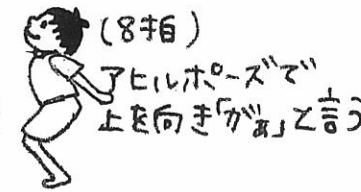 (8拍)
アヒルポーズで
上を向き「がぁ」と言う